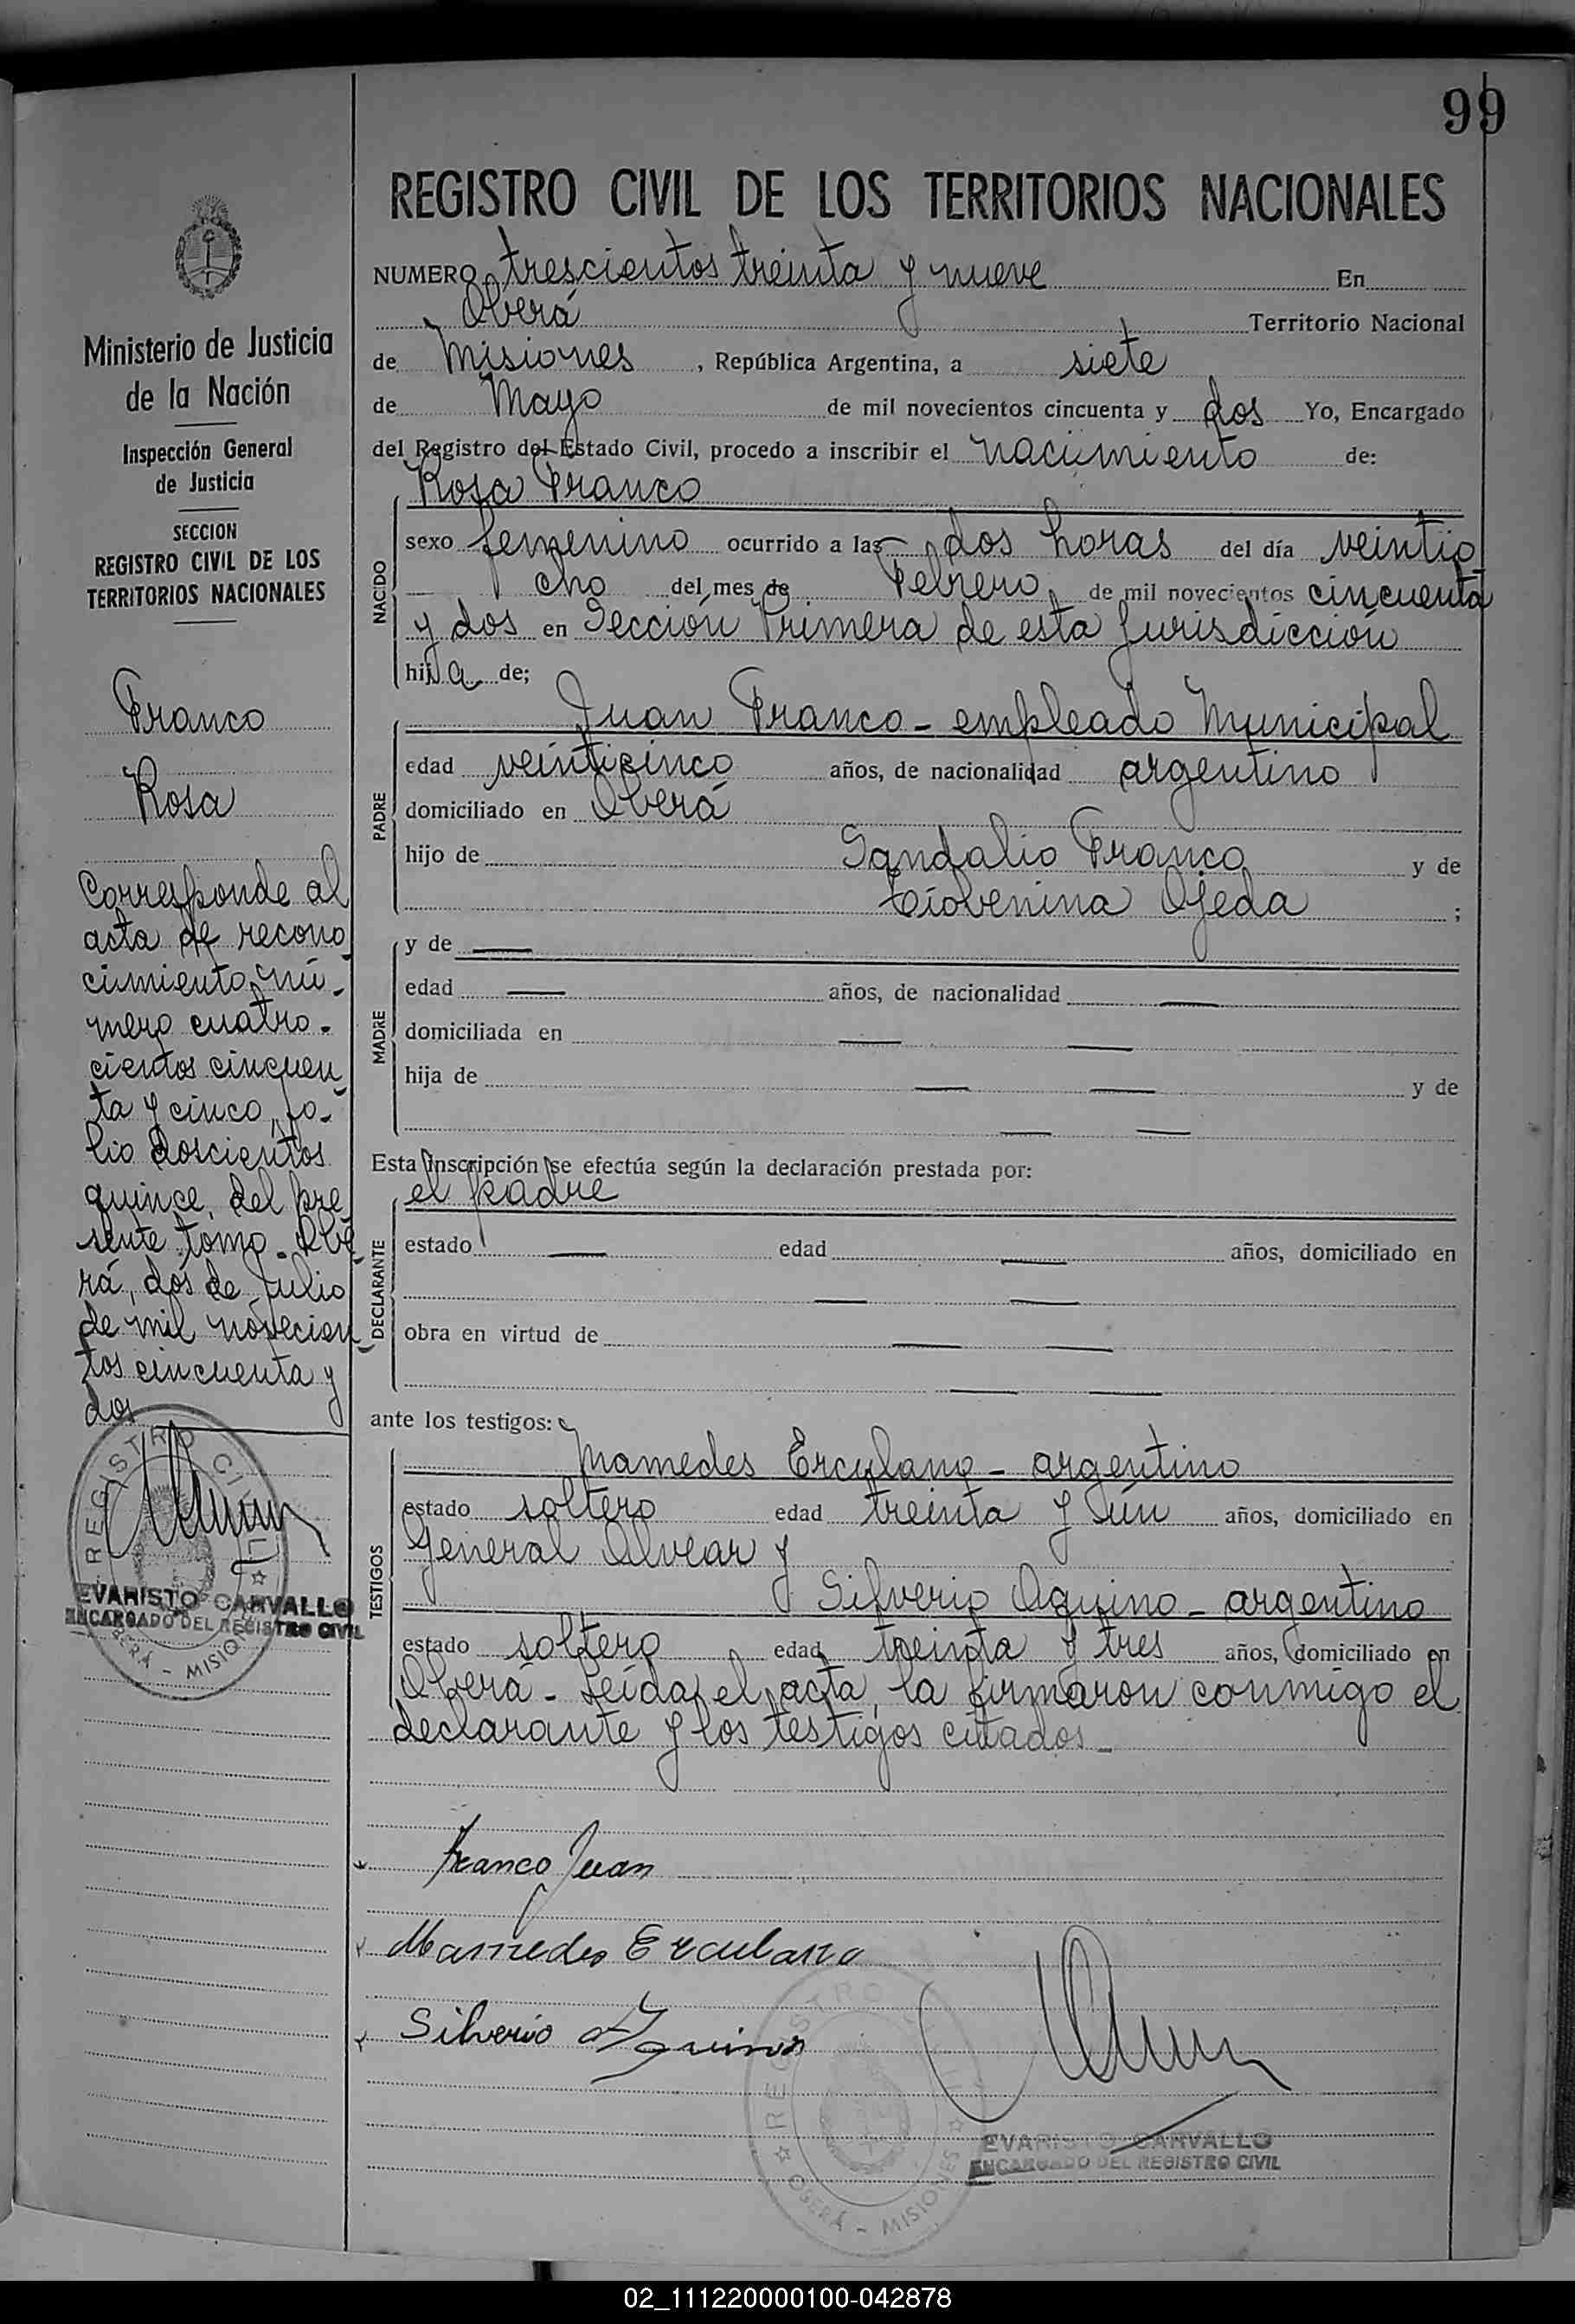 99
REGISTRO CIVIL DE LOS TERRITORIOS NACIONALES
Ministerio de Justicia
de la Nación
Inspección General
de Justicia
SECCION
REGISTRO CIVIL DE LOS
TERRITORIOS NACIONALES
Franco
Rosa
Corresponde al
acta de recono
cimiento nú-
mero cuatro-
cientos cincuen
ta y cinco, fo-
lio doscientos
quince, del pre
sente tomo. Obe
rá, dos de Julio
de mil novecien
tos cincuenta y
dos
REGISTRO CIVIL
OBERÁ - MISIONES
EVARISTO CARVALLO
ENCARGADO DEL REGISTRO CIVIL
NUMERO trescientos treinta y nueve En
Oberá Territorio Nacional
de Misiones, República Argentina, a siete
de Mayo de mil novecientos cincuenta y dos Yo, Encargado
del Registro del Estado Civil, procedo a inscribir el nacimiento de:
Rosa Franco
NACIDO
sexo femenino ocurrido a las dos horas del día veintio
cho del mes de Febrero de mil novecientos cincuenta
y dos en Sección Primera de esta Jurisdicción
hija de;
PADRE
Juan Franco - empleado Municipal
edad veinticinco años, de nacionalidad argentino
domiciliado en Oberá
hijo de Sandalio Franco y de
Ojeda ;
MADRE
y de —
edad — años, de nacionalidad —
domiciliada en — —
hija de — — y de
— —
Esta inscripción se efectúa según la declaración prestada por:
el padre
DECLARANTE
estado — edad — años, domiciliado en
— —
obra en virtud de — —
— —
ante los testigos:
TESTIGOS
Mamedes Erculano - argentino
estado soltero edad treinta y ún años, domiciliado en
General Alvear y
Silverio Aquino - argentino
estado soltero edad treinta y tres años, domiciliado en
Oberá - Leída el acta, la firmaron conmigo el
declarante y los testigos citados -
Franco Juan
Mamedes Erculano
Silverio Aquino
REGISTRO CIVIL
OBERÁ - MISIONES
EVARISTO CARVALLO
ENCARGADO DEL REGISTRO CIVIL
02_111220000100-042878